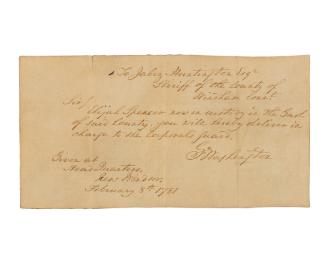 To Jabez Huntington Esqr
Sheriff of the County of
Windham Connt
Sir/
Elijah Spencer now in custody in the Gaol
of said County, you will please deliver in
charge to the Corporals guard.
Go Washington
Given at
Head Quarters,
New Windsor,
February 8th 1781